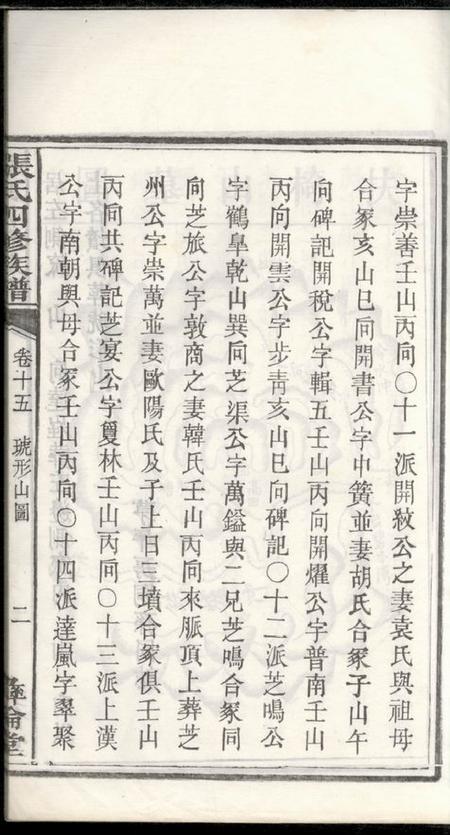 字崇善壬山丙向〇十一派開紋公之妻袁氏與祖母
合冢亥山巳向開書公字中簧並妻胡氏合冢子山午
向碑記開稅公字輯五壬山丙向開燿公字普南壬山
丙向開雲公字步青亥山巳向碑記〇十二派芝鳴公
字鶴臯乾山巽向芝渠公字萬鎰與二兄芝鳴合冢同
向芝旅公字敦商之妻韓氏壬山丙向來脈頂上葬芝
州公字崇萬並妻歐陽氏及子上日三墳合冢俱壬山
丙向共碑記芝宴公字夏林壬山丙向〇十三派上漢
公字南朝與母合冢壬山丙向〇十四派達嵐字翠聚
張氏四修族譜
卷十五
琥形山圖
二
彞倫堂